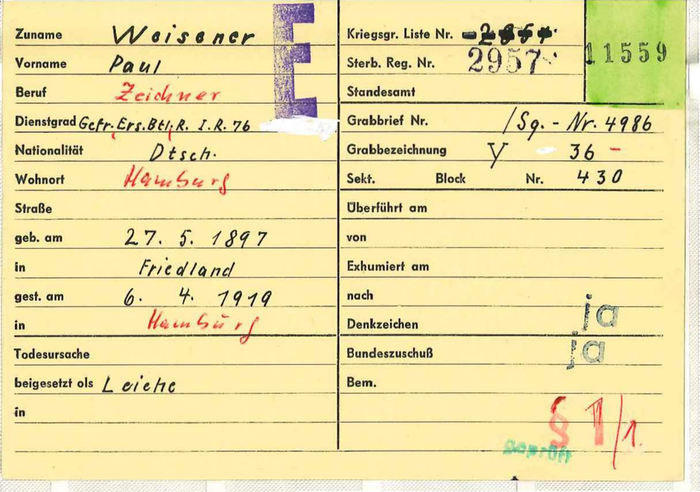 Zuname Weisener
Vorname Paul
Beruf Zeichner
Dienstgrad Gefr. Ers. Btl. R. I. R. 76
Nationalität Dtsch.
Wohnort Hamburg
Straße
geb. am 27. 5. 1897
in Friedland
gest. am 6. 4. 1919
in Hamburg
Todesursache
beigesetzt als Leiche
in
E
Kriegsgr. Liste Nr.
Sterb. Reg. Nr. 2957
11559
Standesamt
Grabbrief Nr. /Sg. - Nr. 4986
Grabbezeichnung Y 36 -
Sekt. Block Nr. 430
Überführt am
von
Exhumiert am
nach
Denkzeichen ja
Bundeszuschuß ja
Bem.
§ 1/1.
geprüft